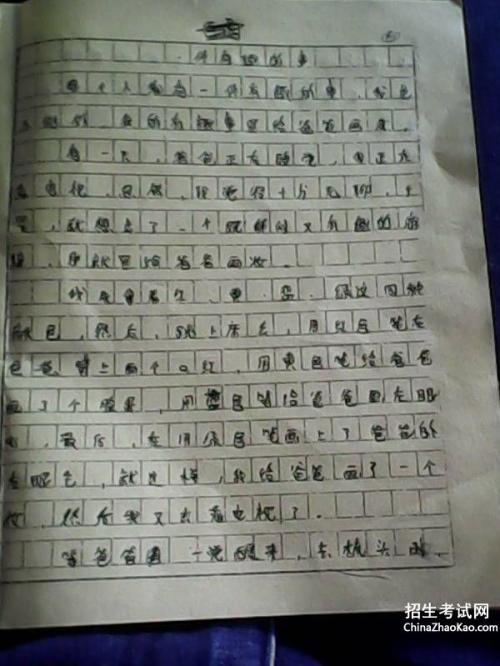 一件有趣的事
每个人都有一件有趣的事，我也
不例外，我的有趣事是给爸爸画妆。
有一天，爸爸正在睡觉，我正在
看电视，忽然，我觉得十分无聊，于
是，就想出了一个既解闷又有趣的游
，那就是给爸爸画妆。
我拿着红、黄、绿这四种
颜色，然后，爬上床去，用红色笔在
爸爸上画个口红，用黄色笔给爸爸
画了个，用色笔给爸爸画左眼
，最后，在用绿色笔画上了爸爸的
右眼，就这样，我给爸爸画了一个
妆，然后我又去看电视了。
等爸爸一觉醒来，去
招生考试网
ChinaZhaoKao.com